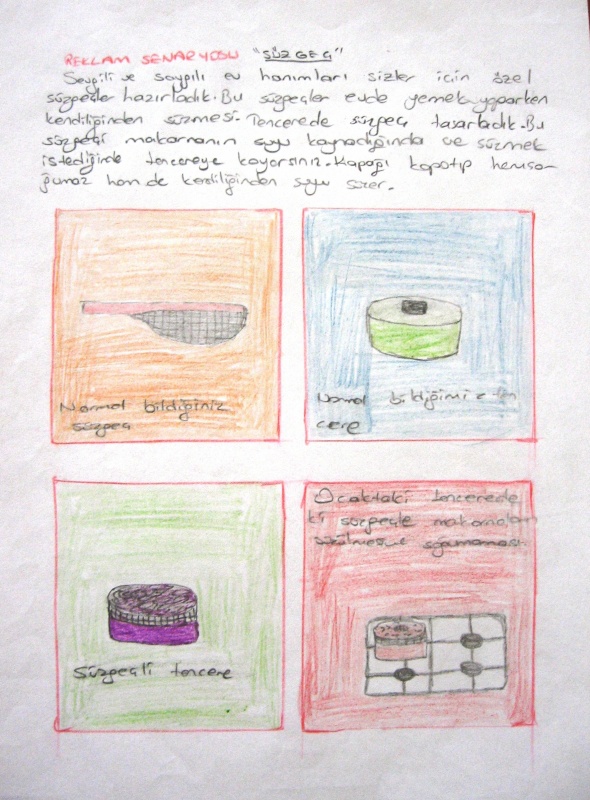 REKLAM SENARYOSU "SÜZGEÇ"
Sevgili ve saygılı ev hanımları sizler için özel
süzgeçler hazırladık. Bu süzgeçler evde yemek yaparken
kendiliğinden süzmesi. Tencerede süzgeç tasarladık. Bu
süzgeçi makarnanın suyu kaynadığında ve süzmek
istediğinde tencereye koyarsınız. Kapağı kapatıp hem
hem de kendiliğinden suyu süzer.
Normal bildiğiniz
süzgeç
Normal bildiğimiz ten
cere
Süzgeçli tencere
Ocaktaki tencerede
ki süzgeçle makarnaların
süzülmesi ve soğumaması